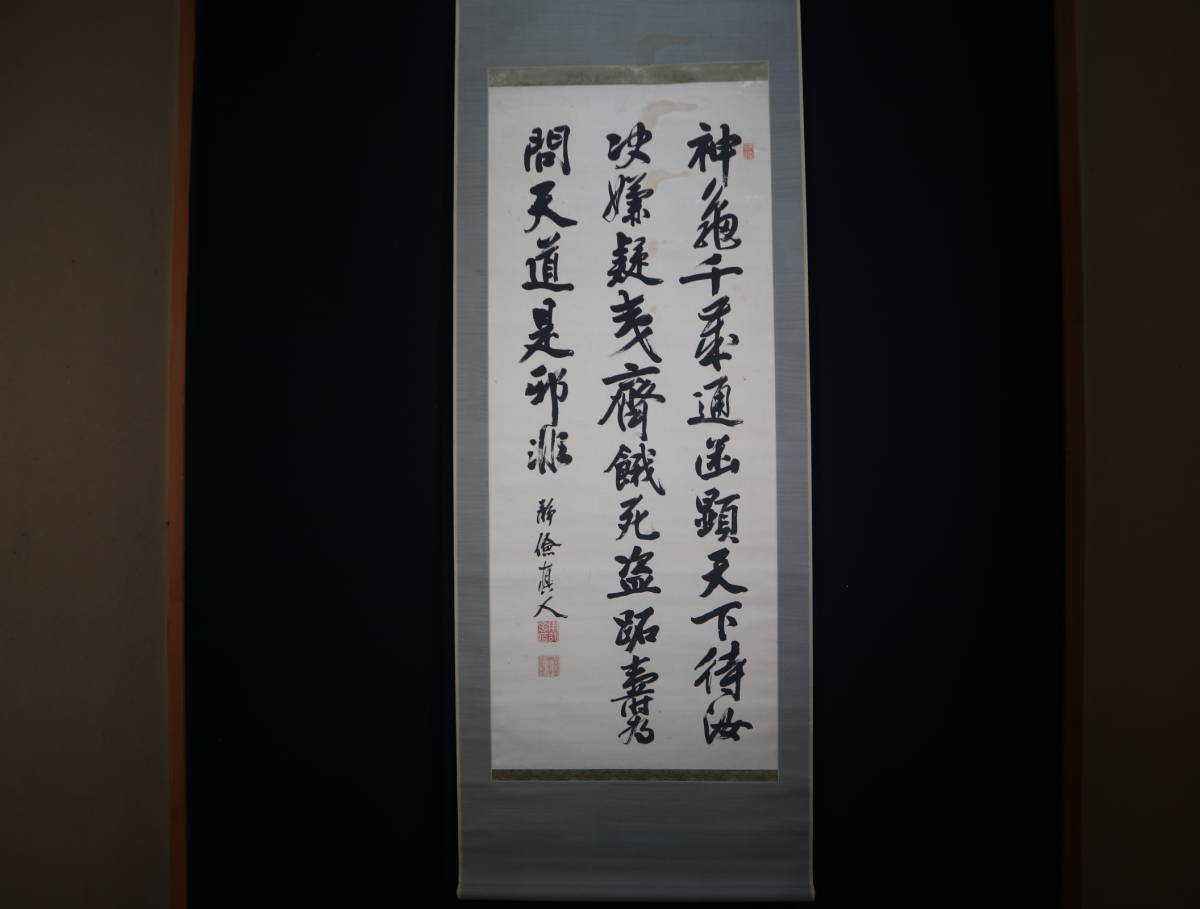 神龜千歳通幽顕天下待汝
决嫌疑夷齊餓死盗跖壽為
問天道是邪非
静儉真人